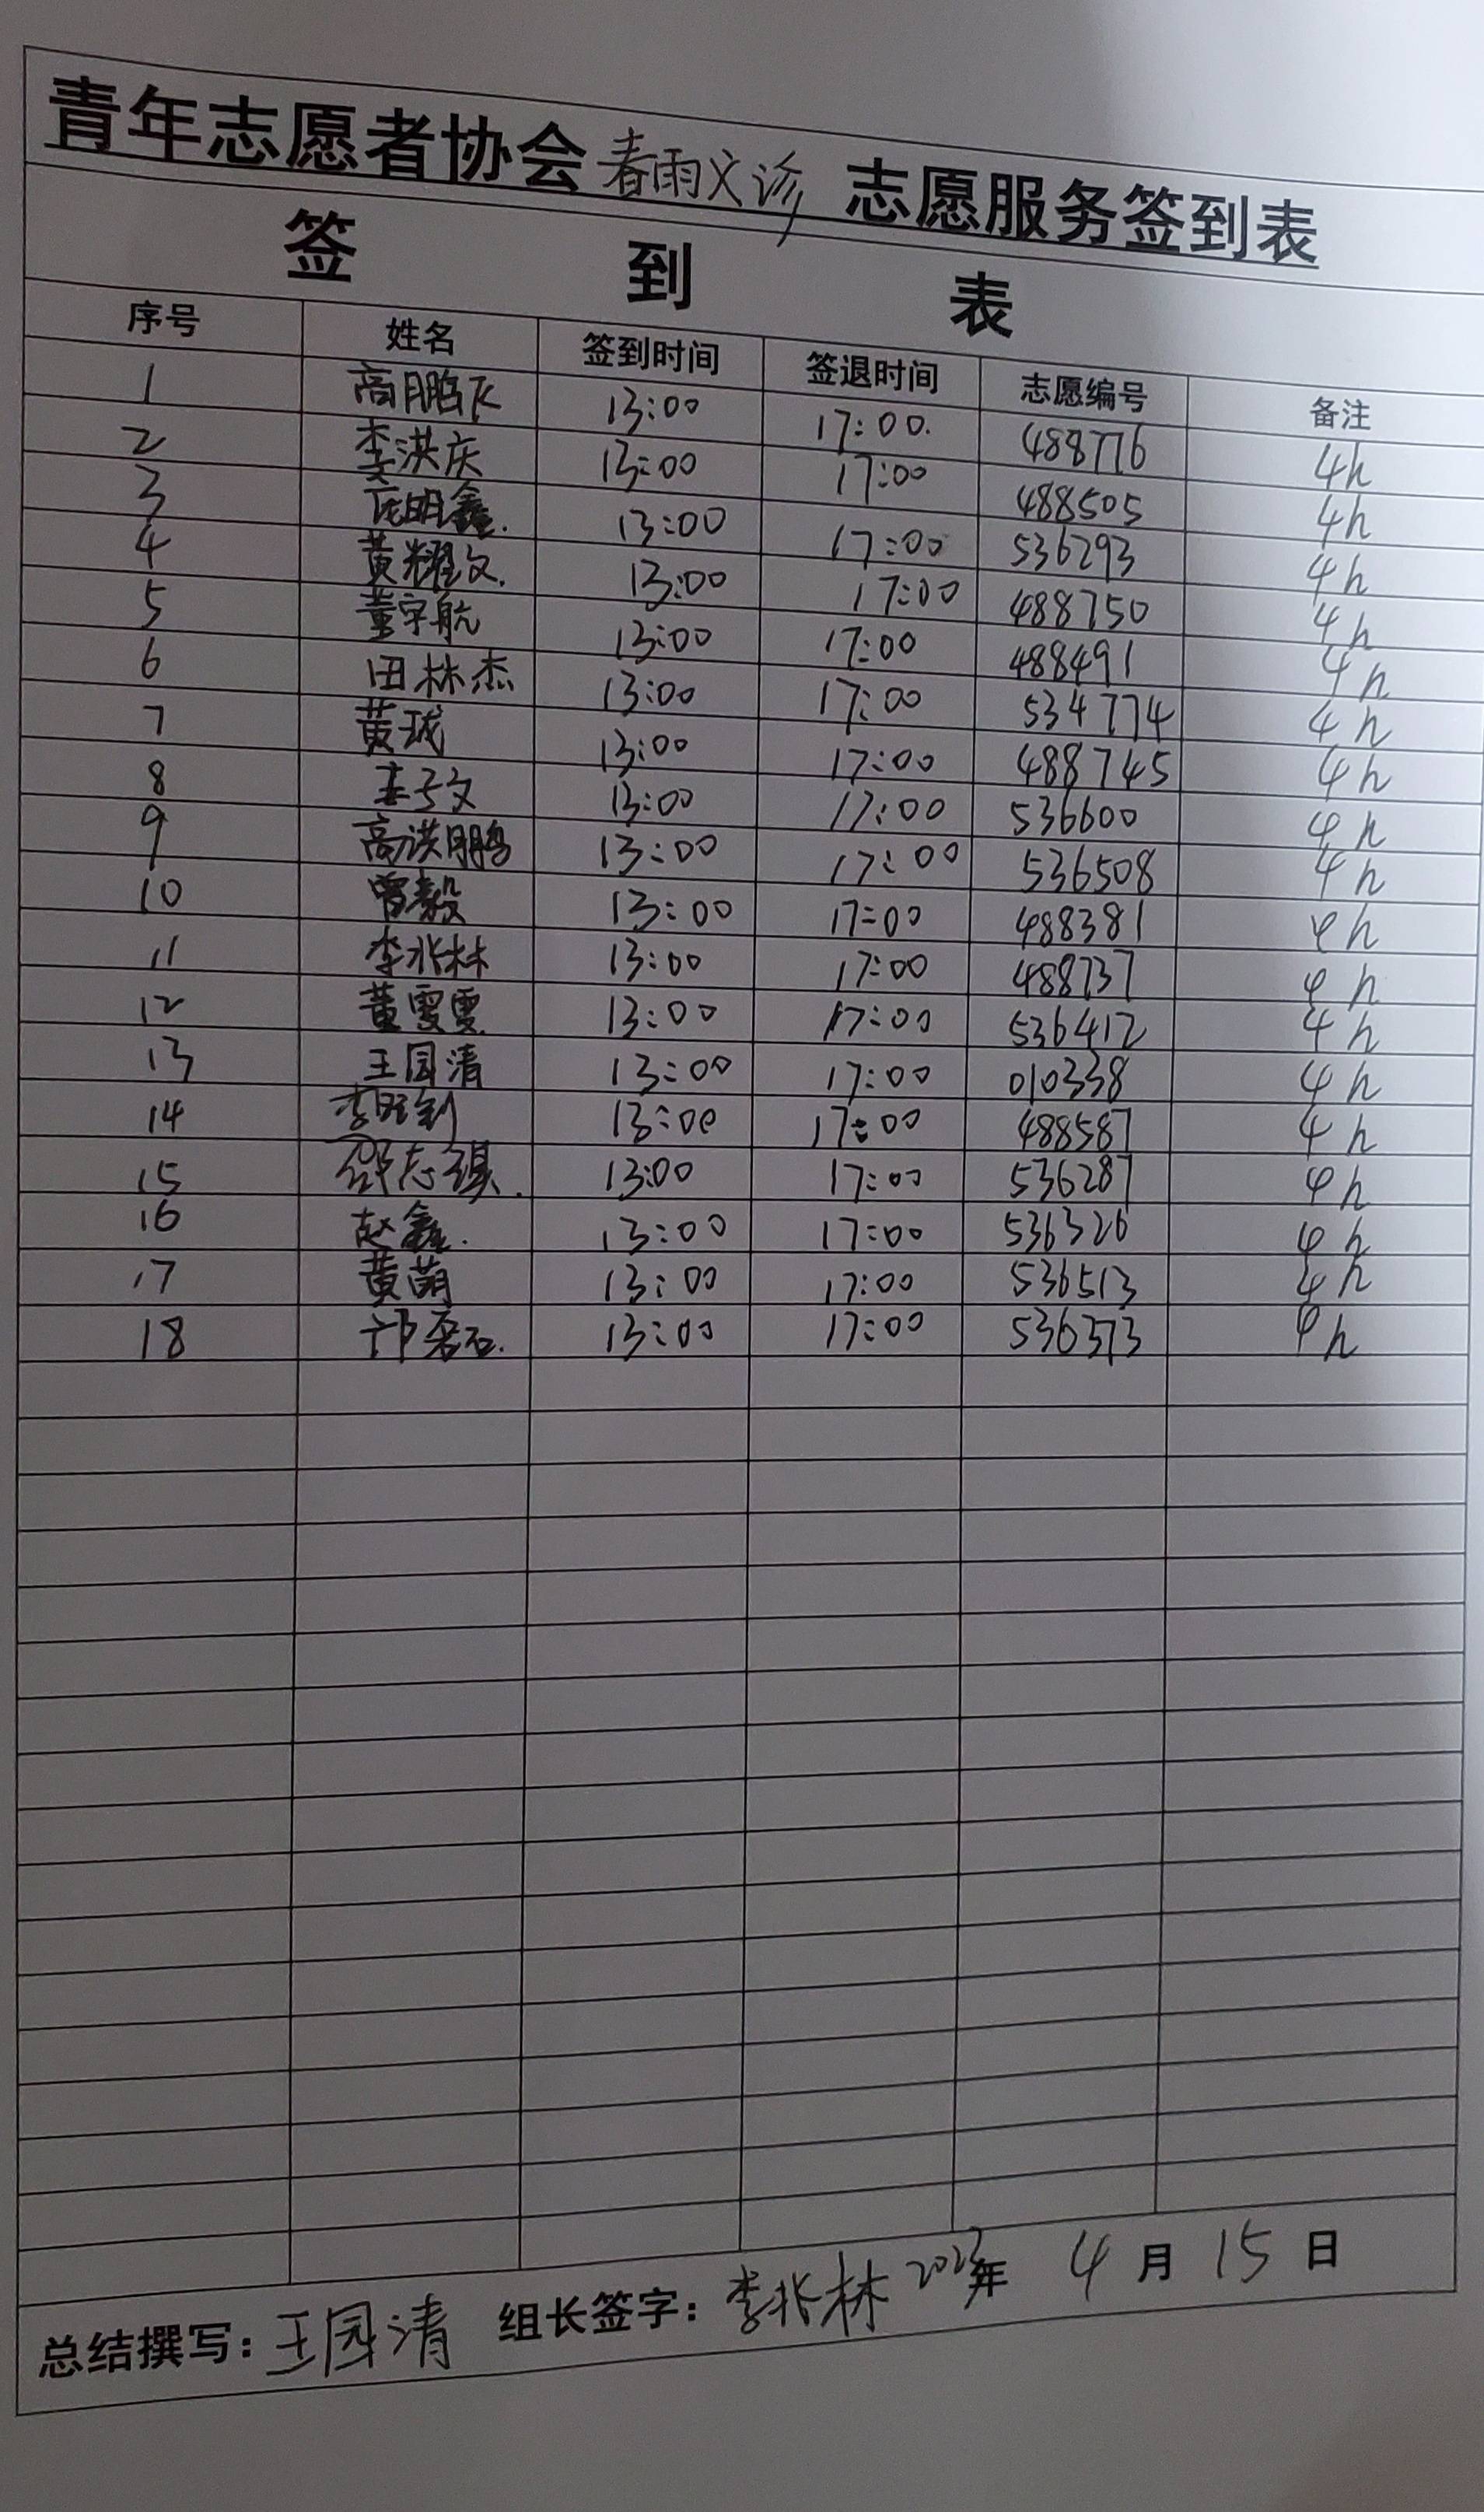 青年志愿者协会春雨义诊 志愿服务签到表
签 到 表
序号 姓名 签到时间 签退时间 志愿编号 备注
1 高鹏飞 13:00 17:00. 488776 4h
2 李洪庆 13:00 17:00 488505 4h
3 明鑫. 13:00 17:00 536293 4h
4 黄耀文. 13:00 17:00 488750 4h
5 董宇航 13:00 17:00 488491 4h
6 田林杰 13:00 17:00 534774 4h
7 黄珑 13:00 17:00 488745 4h
8 文 13:00 17:00 536600 4h
9 高洪鹏 13:00 17:00 536508 4h
10 曾毅 13:00 17:00 488381 4h
11 李兆林 13:00 17:00 488737 4h
12 董雯雯 13:00 17:00 536412 4h
13 王园清 13:00 17:00 010338 4h
14 李 13:00 17:00 488587 4h
15 邵志骐. 13:00 17:00 536287 4h
16 赵鑫. 13:00 17:00 536326 4h
17 黄萌 13:00 17:00 536513 4h
18 13:00 17:00 536373 4h
总结撰写: 王园清 组长签字: 李兆林 2023年 4 月 15 日